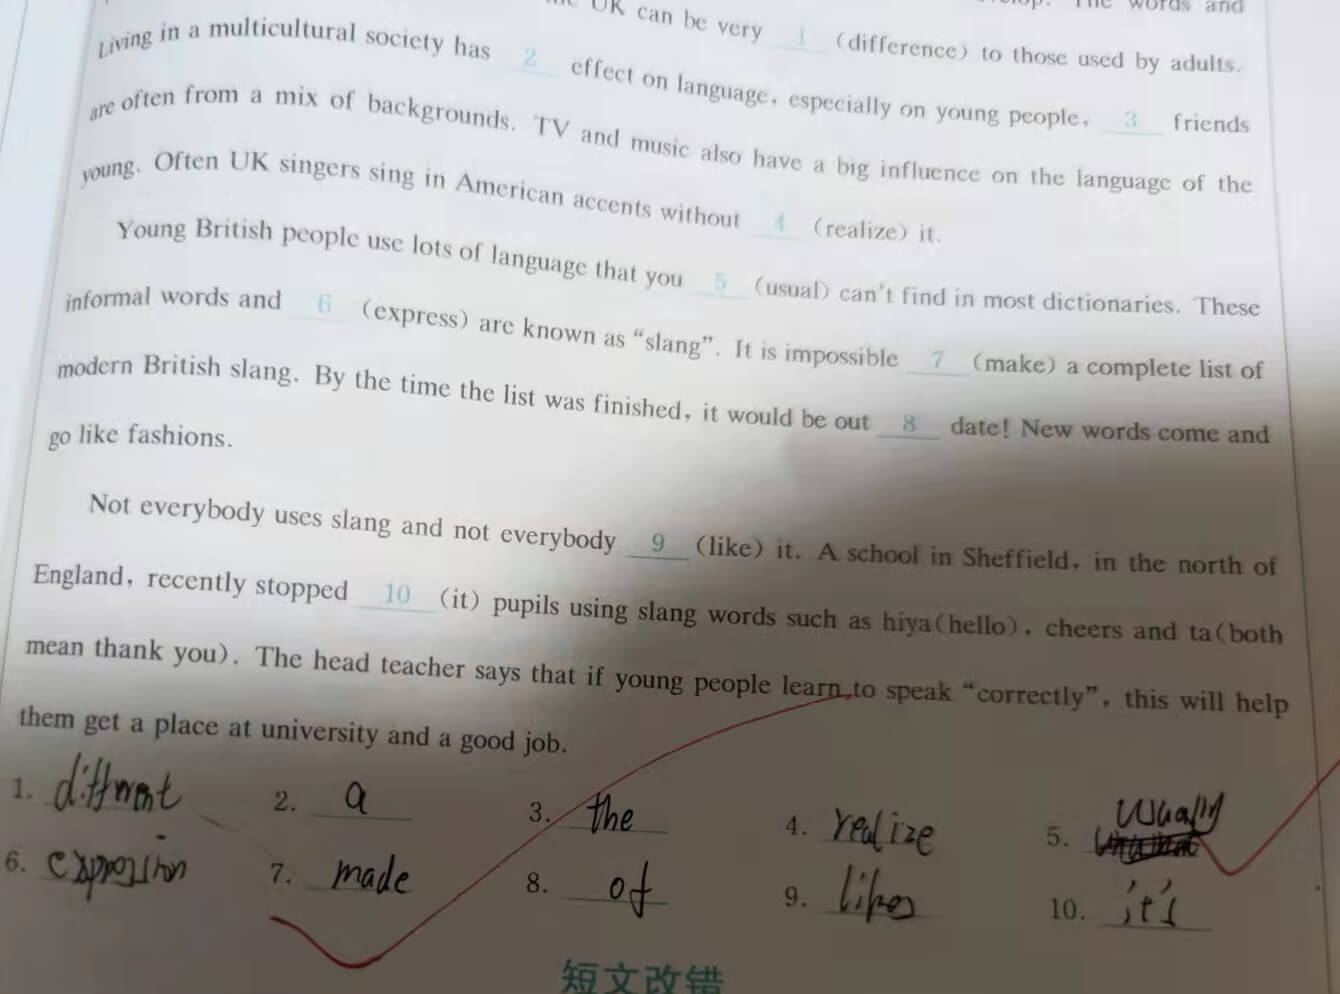 UK can be very 1 (difference) to those used by adults.
Living in a multicultural society has 2 effect on language, especially on young people, 3 friends
are often from a mix of backgrounds. TV and music also have a big influence on the language of the
young. Often UK singers sing in American accents without 4 (realize) it.
Young British people use lots of language that you 5 (usual) can't find in most dictionaries. These
informal words and 6 (express) are known as “slang”. It is impossible 7 (make) a complete list of
modern British slang. By the time the list was finished, it would be out 8 date! New words come and
go like fashions.
Not everybody uses slang and not everybody 9 (like) it. A school in Sheffield, in the north of
England, recently stopped 10 (it) pupils using slang words such as hiya(hello), cheers and ta(both
mean thank you). The head teacher says that if young people learn to speak “correctly”, this will help
them get a place at university and a good job.
1. different 2. a 3. the 4. realize 5. usually
6. expression 7. made 8. of 9. likes 10. it's
短文改错